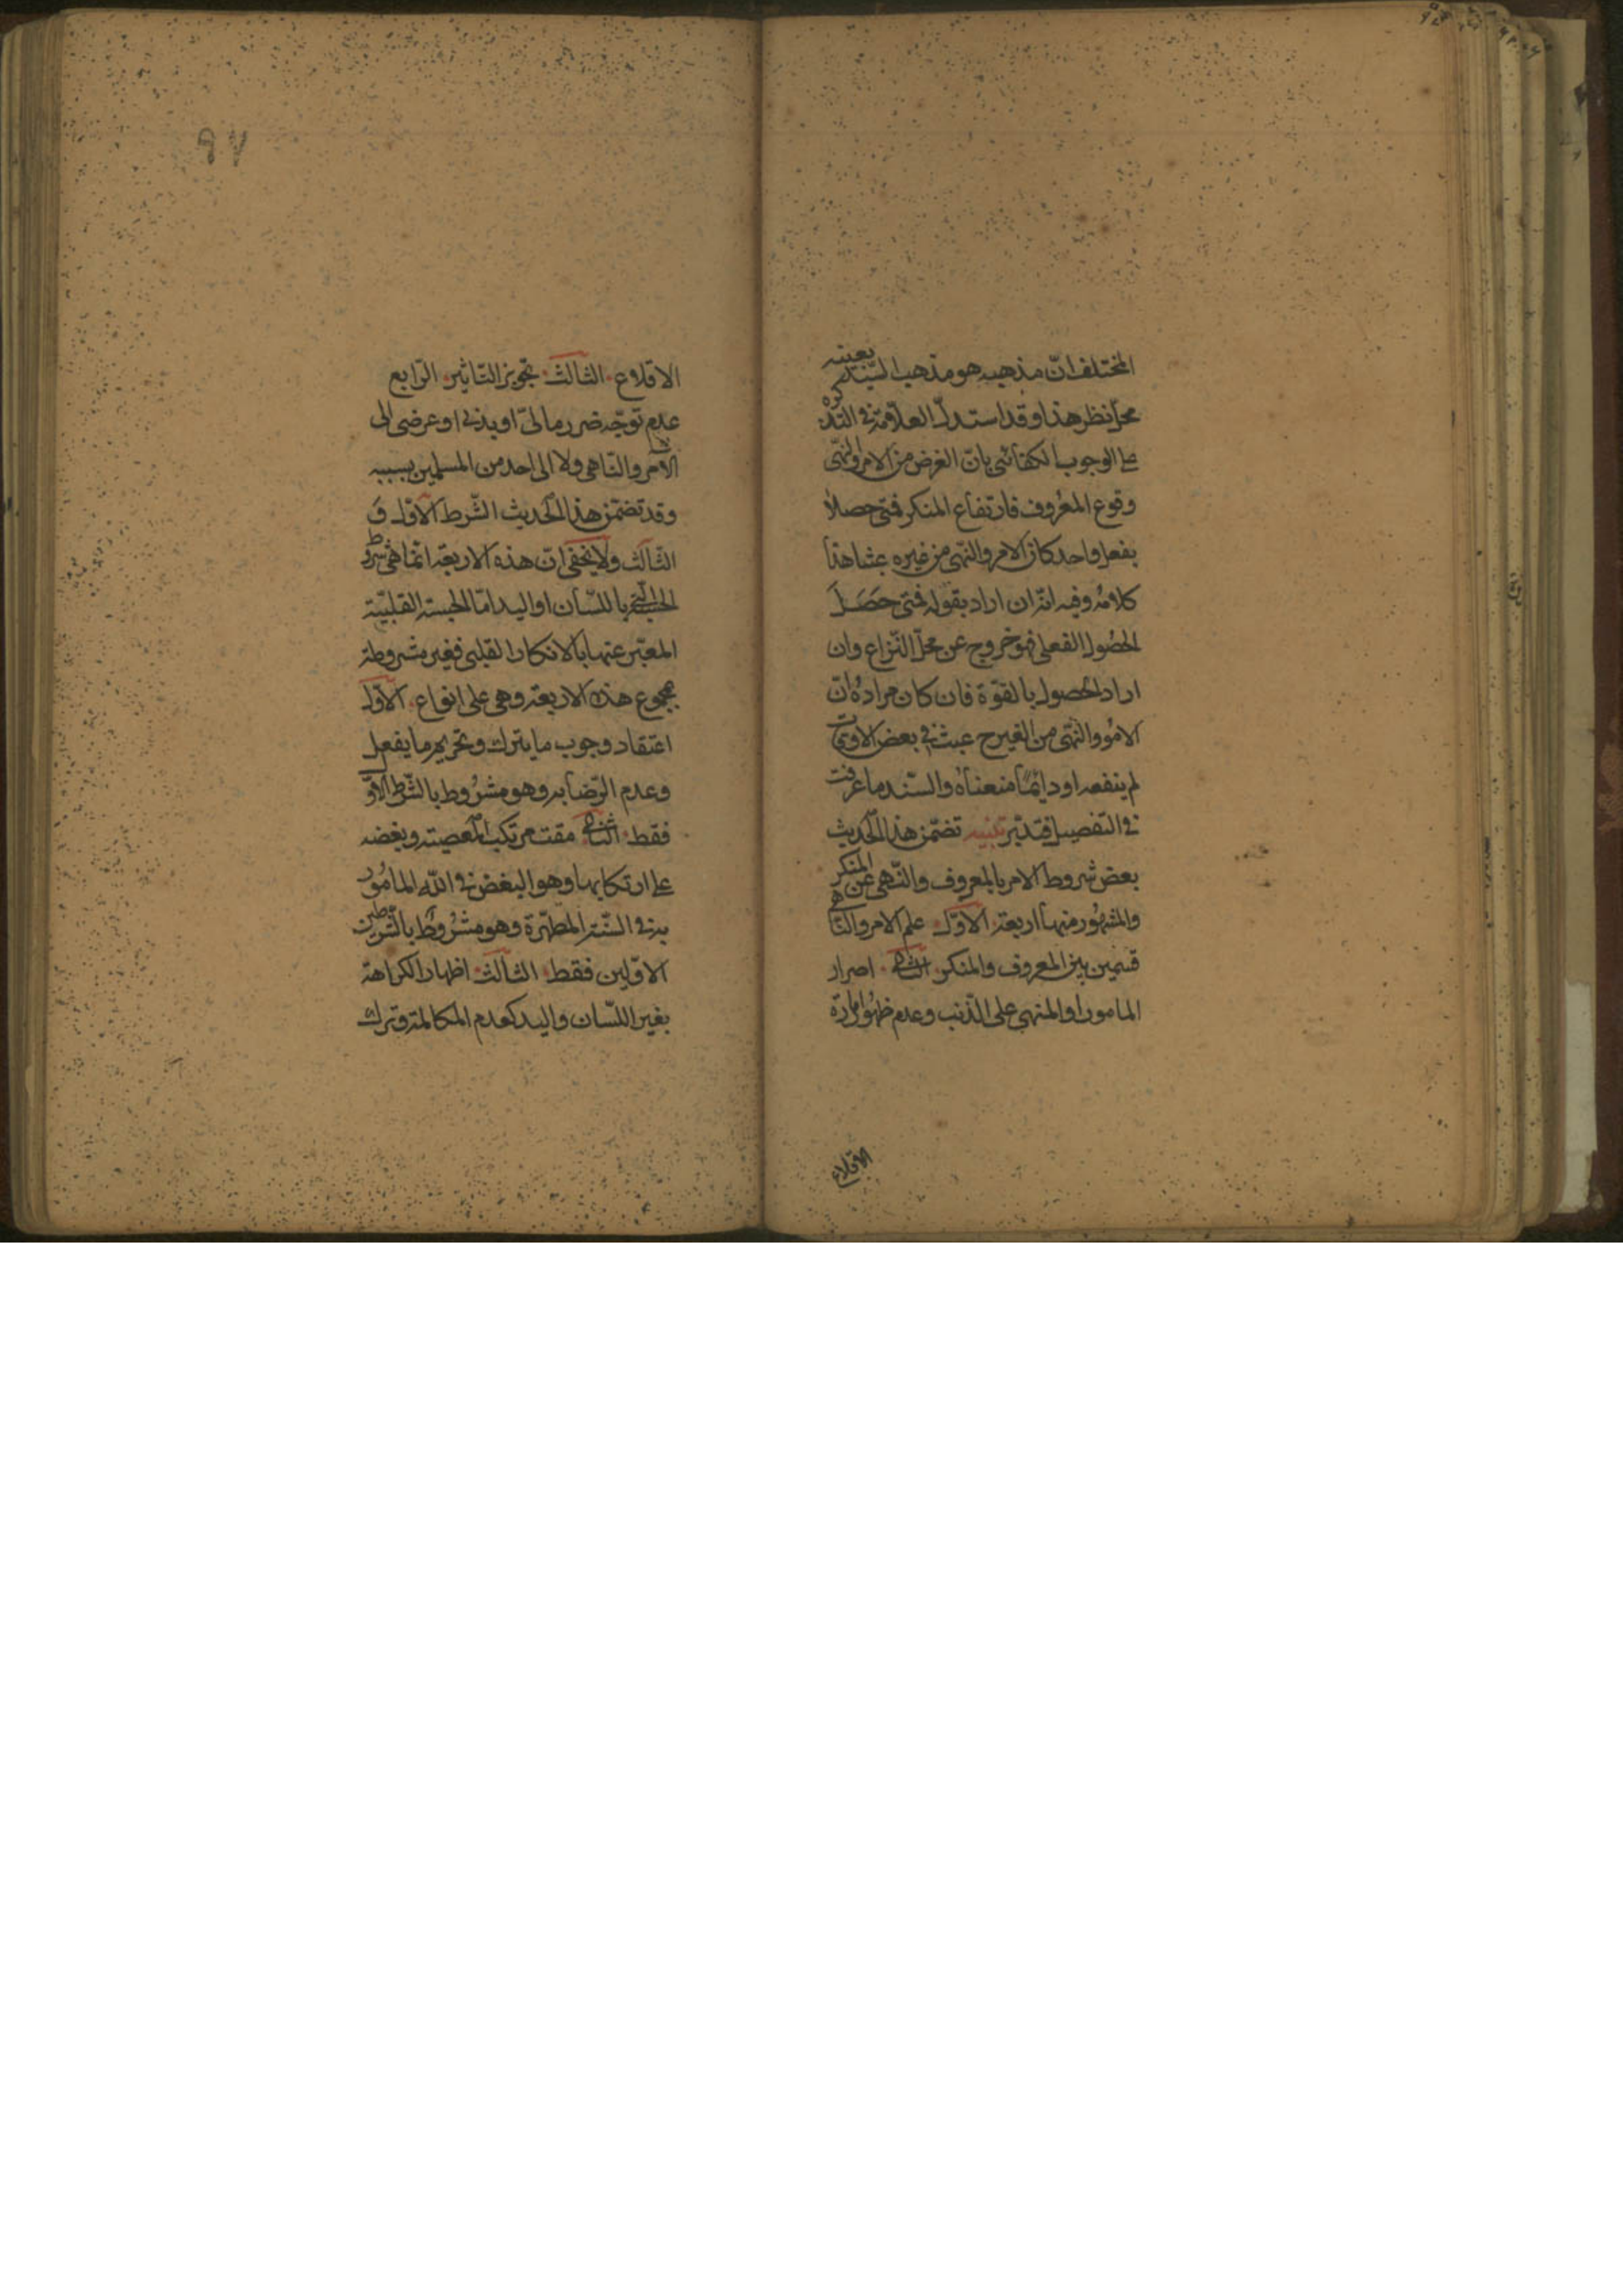 المختلف انّ مذهبه هو مذهب السّيّد بعينه
محلّ نظر هذا وقد استدلّ العلّامة في التذكره
على الوجوب الكفائي بانّ الغرض من الامر والنّهى
وقوع المعروف فارتفاع المنكر فمتى حصلا
بفعل واحد كان الامر والنّهى من غيره عبثا هذا
كلامه وفيه انّه ان اراد بقوله فمتى حَصَلَ
الحصُول الفعلى فهو خروج عن محلّ النّزاع وان
اراد الحصول بالقوّة فان كان مرادهُ انّ
الامر والنّهى من الغير ح عبث في بعض الاوقات
لم ينفعه او دايمًا منعناه والسّند ما عرفت
في التفصيل فتدبّر تنبيه تضمّن هذا الحديث
بعض شروط الامر بالمعروف والنّهى عن المنكر
والمشهُور منها اربعة الاوّل علم الامر والنّاهى
قسمين بين المعروف والمنكر الثانى اصرار
المامور او المنهى على الذّنب وعدم ظهُور امارة
الاقلاع
٩٧
الاقلاع الثالث تجويز التّاثير الرّابع
عدم توجّه ضرر مالىّ او بدنى او عرضى الى
الآمر والنّاهى ولا الى احد من المسلمين بسببه
وقد تضمّن هذا الحديث الشّرط الاوّل وَ
الثّالث ولا يخفى انّ هذه الاربعة انّما هى شروط
الحسبة باللّسان او اليد امّا الحسبة القلبيّة
المعبّر عنها بالانكار القلبى فغير مشروطة
بمجموع هذه الاربعة وهى على انواع الاوّل
اعتقاد وجوب ما يترك وتحريم ما يفعل
وعدم الرّضا به وهو مشرُوط بالشّرط الاوّل
فقط الثانى مقت مرتكب المعصية وبغضه
على ارتكابها وهو البغض في اللّه المامُور
به في السّنّة المطهّرة وهو مشرُوط بالشّرطين
الاوّلين فقط الثالث اظهار الكراهة
بغير اللّسان واليد كعدم المكالمة وترك